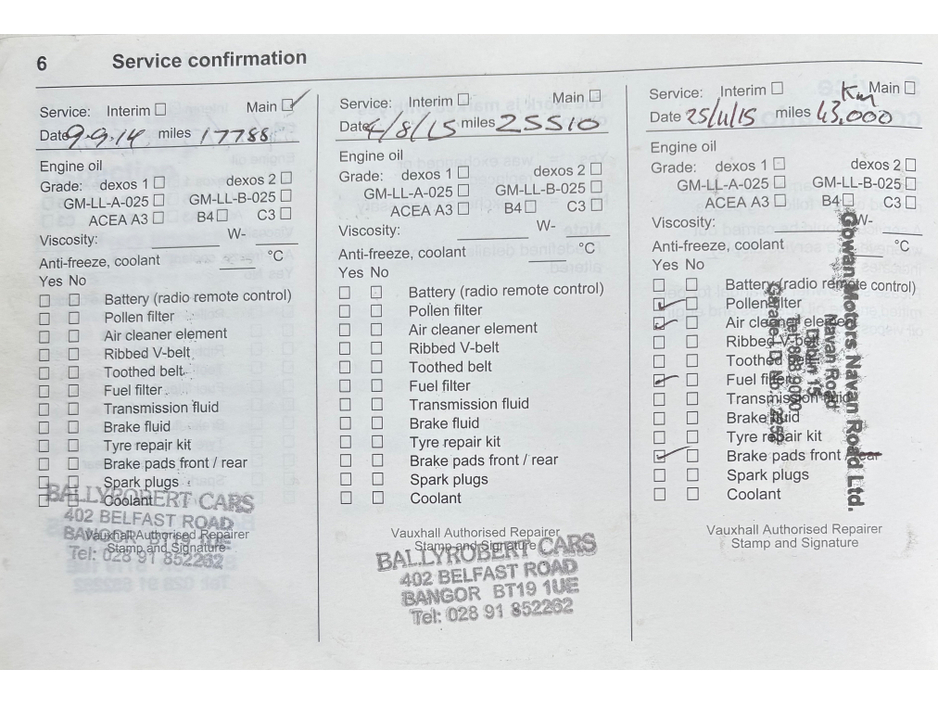 6 Service confirmation
Service: Interim ☐ Main ☑
Date 9.9.14 miles 17788
Engine oil
Grade: dexos 1 ☐ dexos 2 ☐
GM-LL-A-025 ☐ GM-LL-B-025 ☐
ACEA A3 ☐ B4 ☐ C3 ☐
Viscosity: W-
Anti-freeze, coolant °C
Yes No
☐ ☐ Battery (radio remote control)
☐ ☐ Pollen filter
☐ ☐ Air cleaner element
☐ ☐ Ribbed V-belt
☐ ☐ Toothed belt
☐ ☐ Fuel filter
☐ ☐ Transmission fluid
☐ ☐ Brake fluid
☐ ☐ Tyre repair kit
☐ ☐ Brake pads front / rear
☐ ☐ Spark plugs
☐ ☐ Coolant
Vauxhall Authorised Repairer
Stamp and Signature
BALLYROBERT CARS
402 BELFAST ROAD
BANGOR BT19 1UE
Tel: 028 91 852262
Service: Interim ☐ Main ☐
Date 4/8/15 miles 25510
Engine oil
Grade: dexos 1 ☐ dexos 2 ☐
GM-LL-A-025 ☐ GM-LL-B-025 ☐
ACEA A3 ☐ B4 ☐ C3 ☐
Viscosity: W-
Anti-freeze, coolant °C
Yes No
☐ ☐ Battery (radio remote control)
☐ ☐ Pollen filter
☐ ☐ Air cleaner element
☐ ☐ Ribbed V-belt
☐ ☐ Toothed belt
☐ ☐ Fuel filter
☐ ☐ Transmission fluid
☐ ☐ Brake fluid
☐ ☐ Tyre repair kit
☐ ☐ Brake pads front / rear
☐ ☐ Spark plugs
☐ ☐ Coolant
Vauxhall Authorised Repairer
Stamp and Signature
BALLYROBERT CARS
402 BELFAST ROAD
BANGOR BT19 1UE
Tel: 028 91 852262
Service: Interim ☐ Main ☐
Km
Date 25/11/15 miles 43,000
Engine oil
Grade: dexos 1 ☐ dexos 2 ☐
GM-LL-A-025 ☐ GM-LL-B-025 ☐
ACEA A3 ☐ B4 ☐ C3 ☐
Viscosity: W-
Anti-freeze, coolant °C
Yes No
☐ ☐ Battery (radio remote control)
☑ ☐ Pollen filter
☑ ☐ Air cleaner element
☐ ☐ Ribbed V-belt
☐ ☐ Toothed belt
☑ ☐ Fuel filter
☐ ☐ Transmission fluid
☐ ☐ Brake fluid
☐ ☐ Tyre repair kit
☑ ☐ Brake pads front / rear
☐ ☐ Spark plugs
☐ ☐ Coolant
Vauxhall Authorised Repairer
Stamp and Signature
Gowan Motors Navan Road Ltd.
Navan Road
Dublin 15
Tel: 868 9000
Garage I.D No.